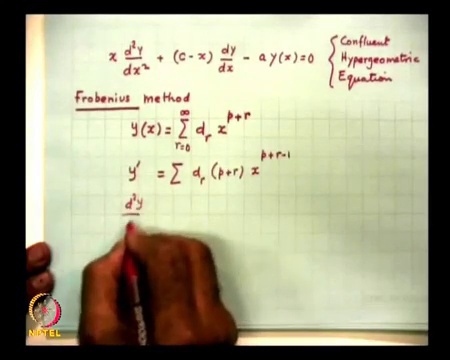 x d²y/dx² + (c-x) dy/dx - a y(x) = 0 { Confluent
Hypergeometric
Equation
Frobenius method
y(x) = ∑_{r=0}^{∞} d_r x^{p+r}
y' = ∑ d_r (p+r) x^{p+r-1}
d²y
NPTEL